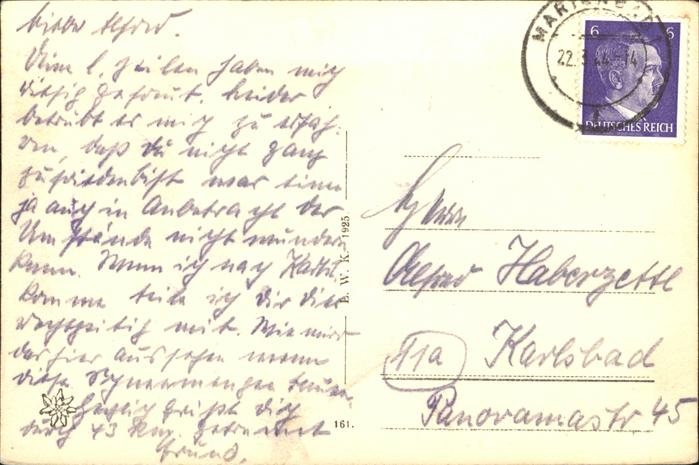 Lieber Alfred.
Deine l. Zeilen haben mich
riesig gefreut. Leider
betrübt es mich zu erfah-
ren, daß du nicht ganz
zufrieden bist was einen
ja auch in Anbetracht der
Umstände nicht wundern
kann. Wenn ich nach Karlsb.
komme teile ich dir dies
rechtzeitig mit. Wie wird
das hier aussehen wenn
diese Schneemengen tauen.
Herzlich grüßt dich
durch 43 km getrennt
MARIENBAD
22.3.44-14
6 6
DEUTSCHES REICH
E. W. K. 1925
161.
Herrn
Alfred Haberzettl
11a Karlsbad
Panoramastr 45